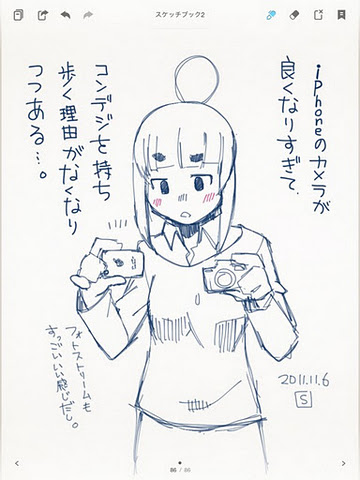 スケッチブック2
iPhoneのカメラが
良くなりすぎて、
コンデジを持ち
歩く理由がなくなり
つつある…。
フォトストリームも
すっごいいい感じだし。
2011.11.6
S
86 / 86